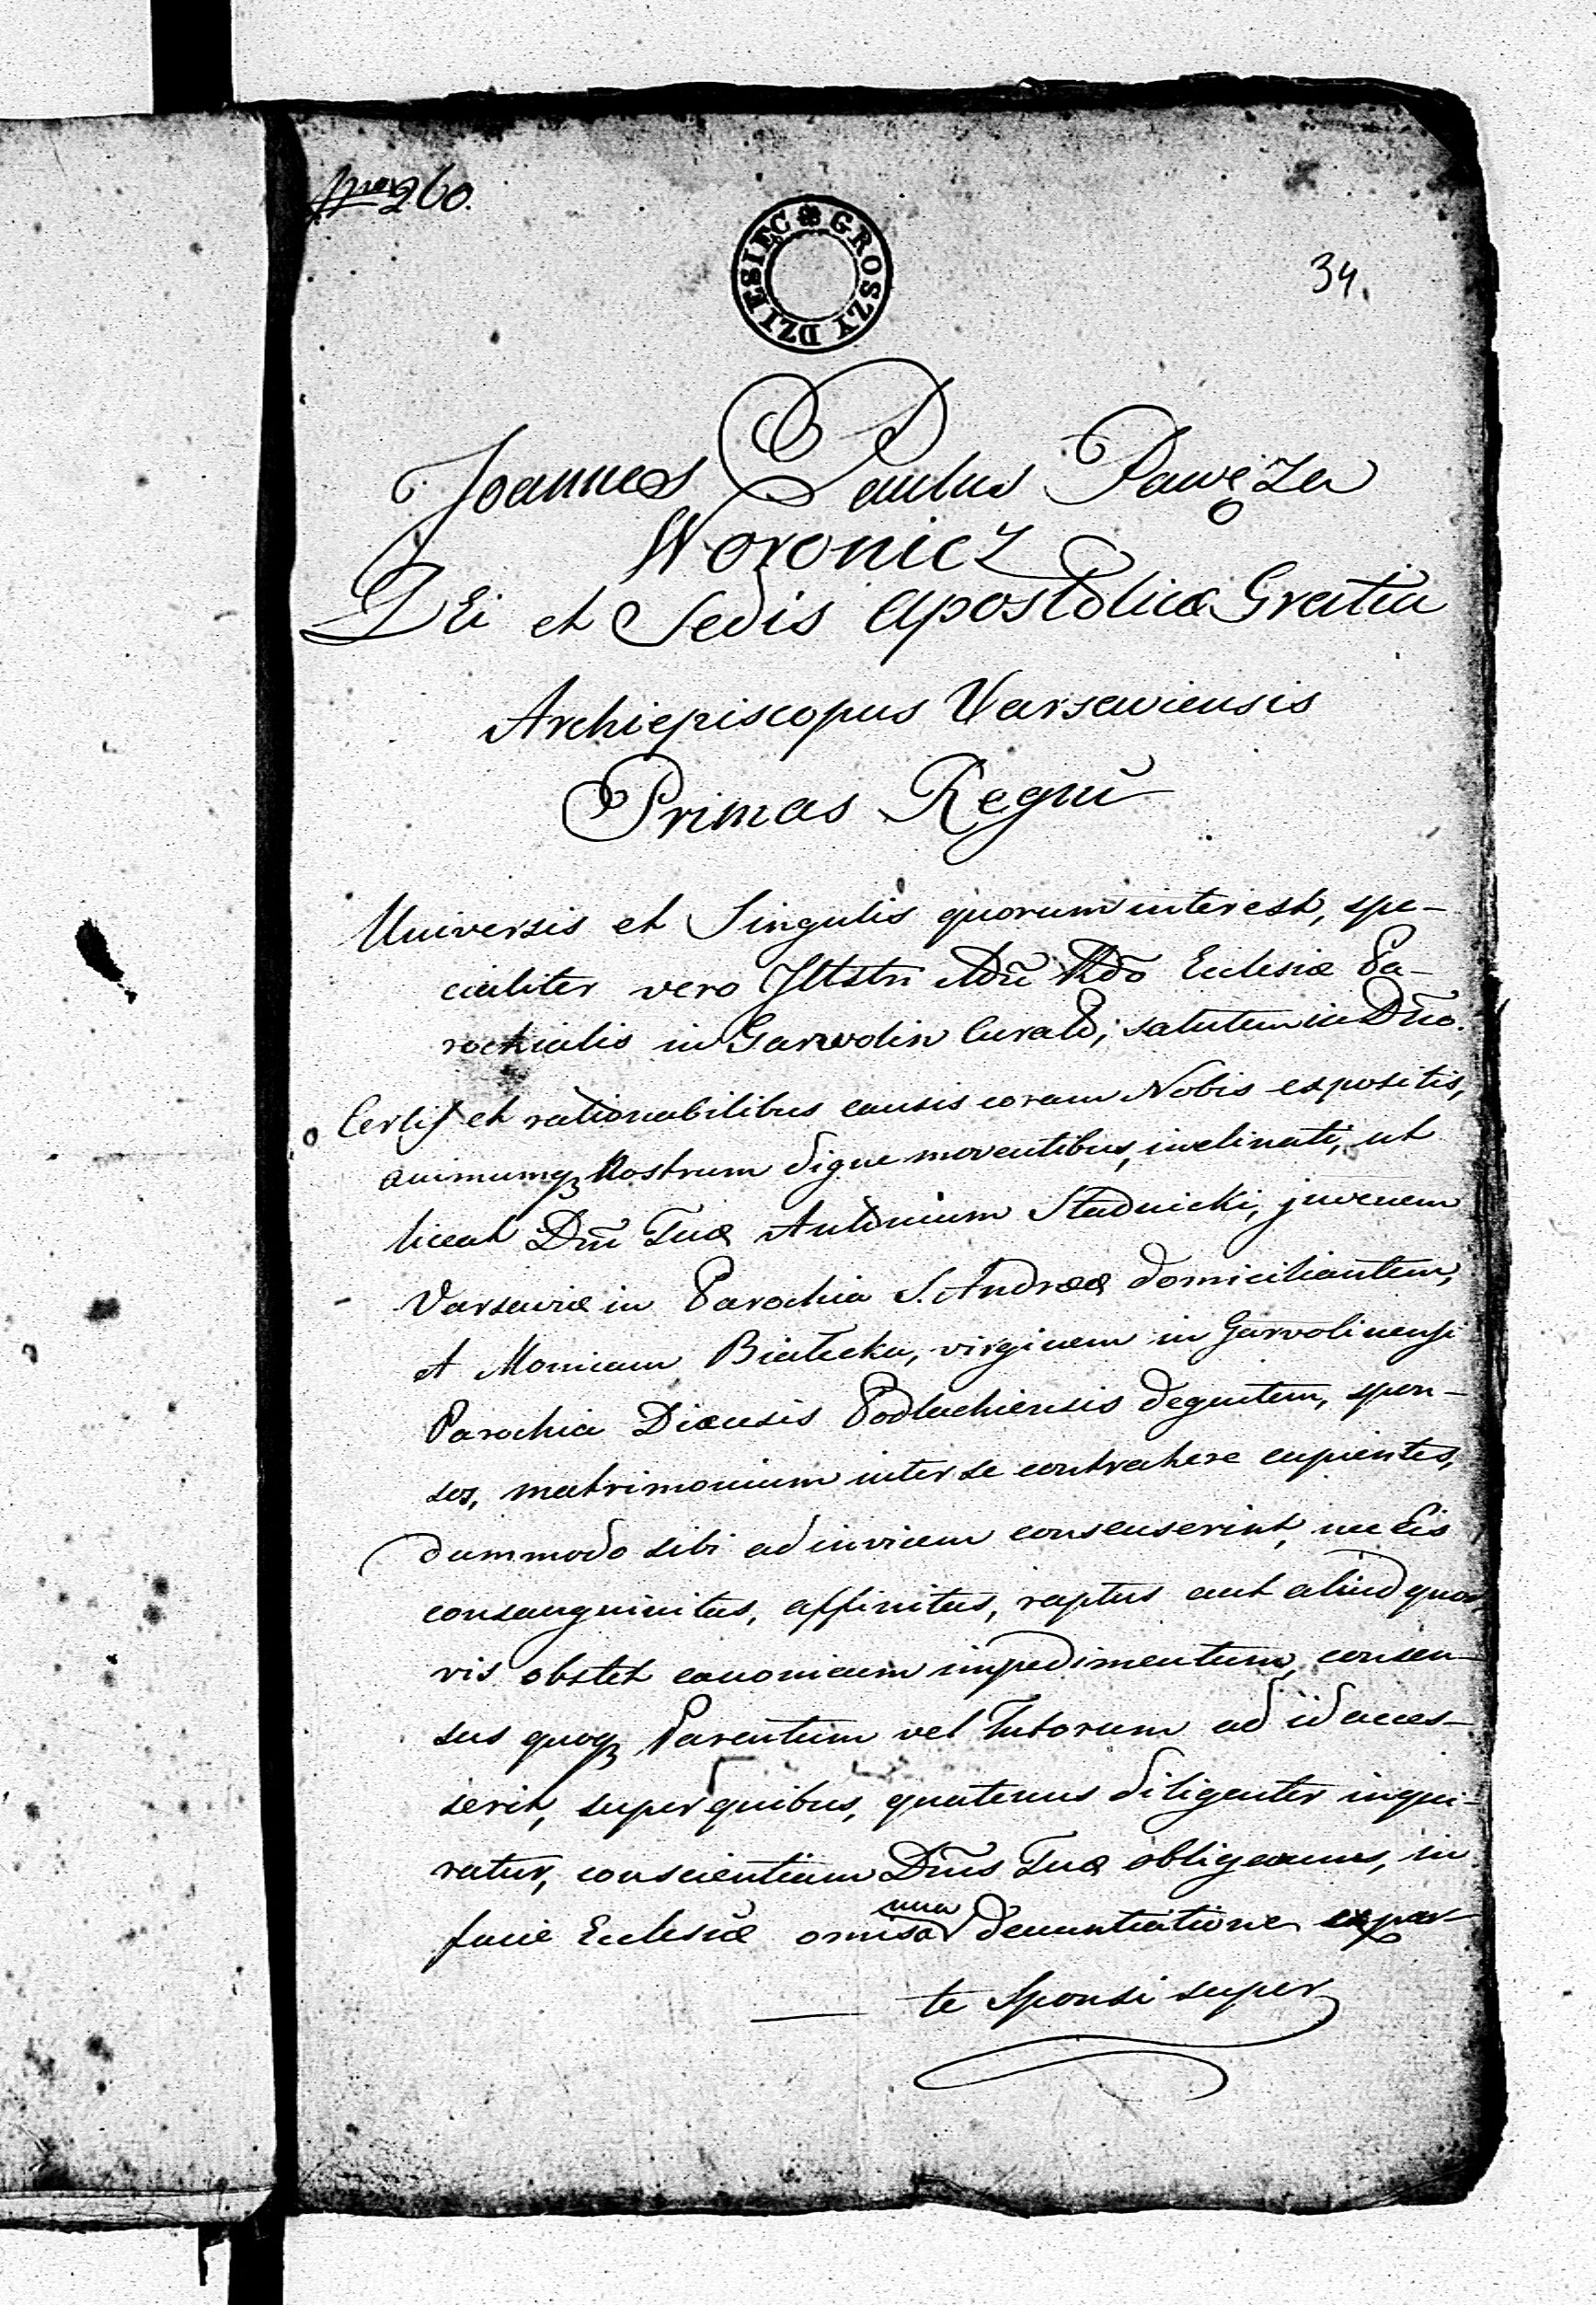 260.
GROSZY DZIESIEC
34.
Joannes Paulus Pawęza
Woronicz
DEi et Sedis Apostolicæ Gratia
Archiepiscopus Varsaviensis
Primas Regni
Universis et Singulis quorum interest, spe-
cialiter vero Illstri Adm̃ Rdõ Eclesiæ Pa-
rochialis in Garwolin Curato, salutem in Dño.
Certis et rationabilibus causis coram Nobis expositis,
animumqȝ Nostrum digne moventibus, inclinati, ut
liceat Dñi Tuæ Antonium Stadnicki, juvenem
Varsaviæ in Parochia S. Andreæ domiciliantem,
et Monicam Białecka, virginem in Garvolinensi
Parochia Diæcsis Podlachiensis degentem, spon-
sos, matrimonium inter se contrahere cupientes,
dummodo sibi ad invicem consenserint, nec Eis
consanguinitas, affinitas, raptus aut aliud quod-
vis obstet canonicum impedimentum, consen-
sus quoqȝ Parentum vel Tutorum ad id acces-
serit, super quibus, quatenus diligenter inqui-
ratur, conscientiam Dñis Tuæ obligamus, in
facie Eclesiæ omisa una denuntiatione ex par-
te Sponsi super